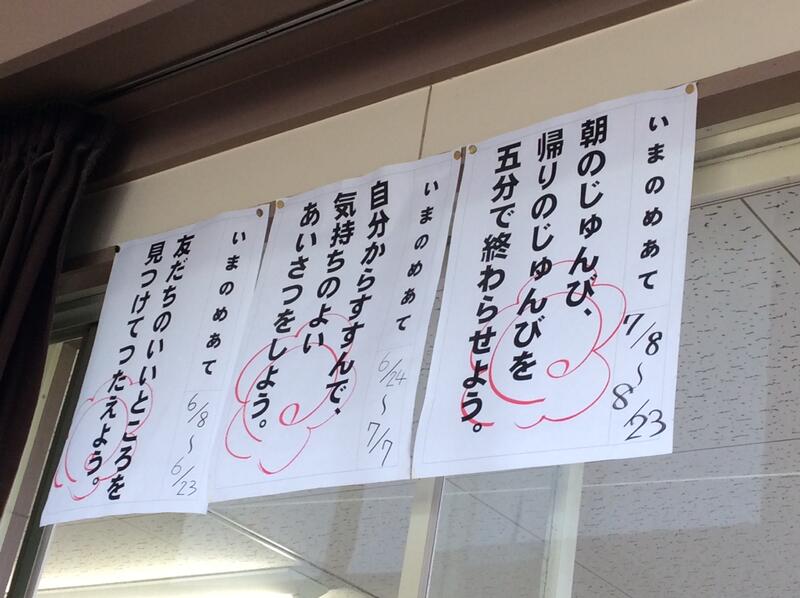 いまのめあて
7/8〜8/23
朝のじゅんび、
帰りのじゅんびを
五分で終わらせよう。
いまのめあて
6/24〜7/7
自分からすすんで、
気持ちのよい
あいさつをしよう。
いまのめあて
6/8〜6/23
友だちのいいところを
見つけてつたえよう。